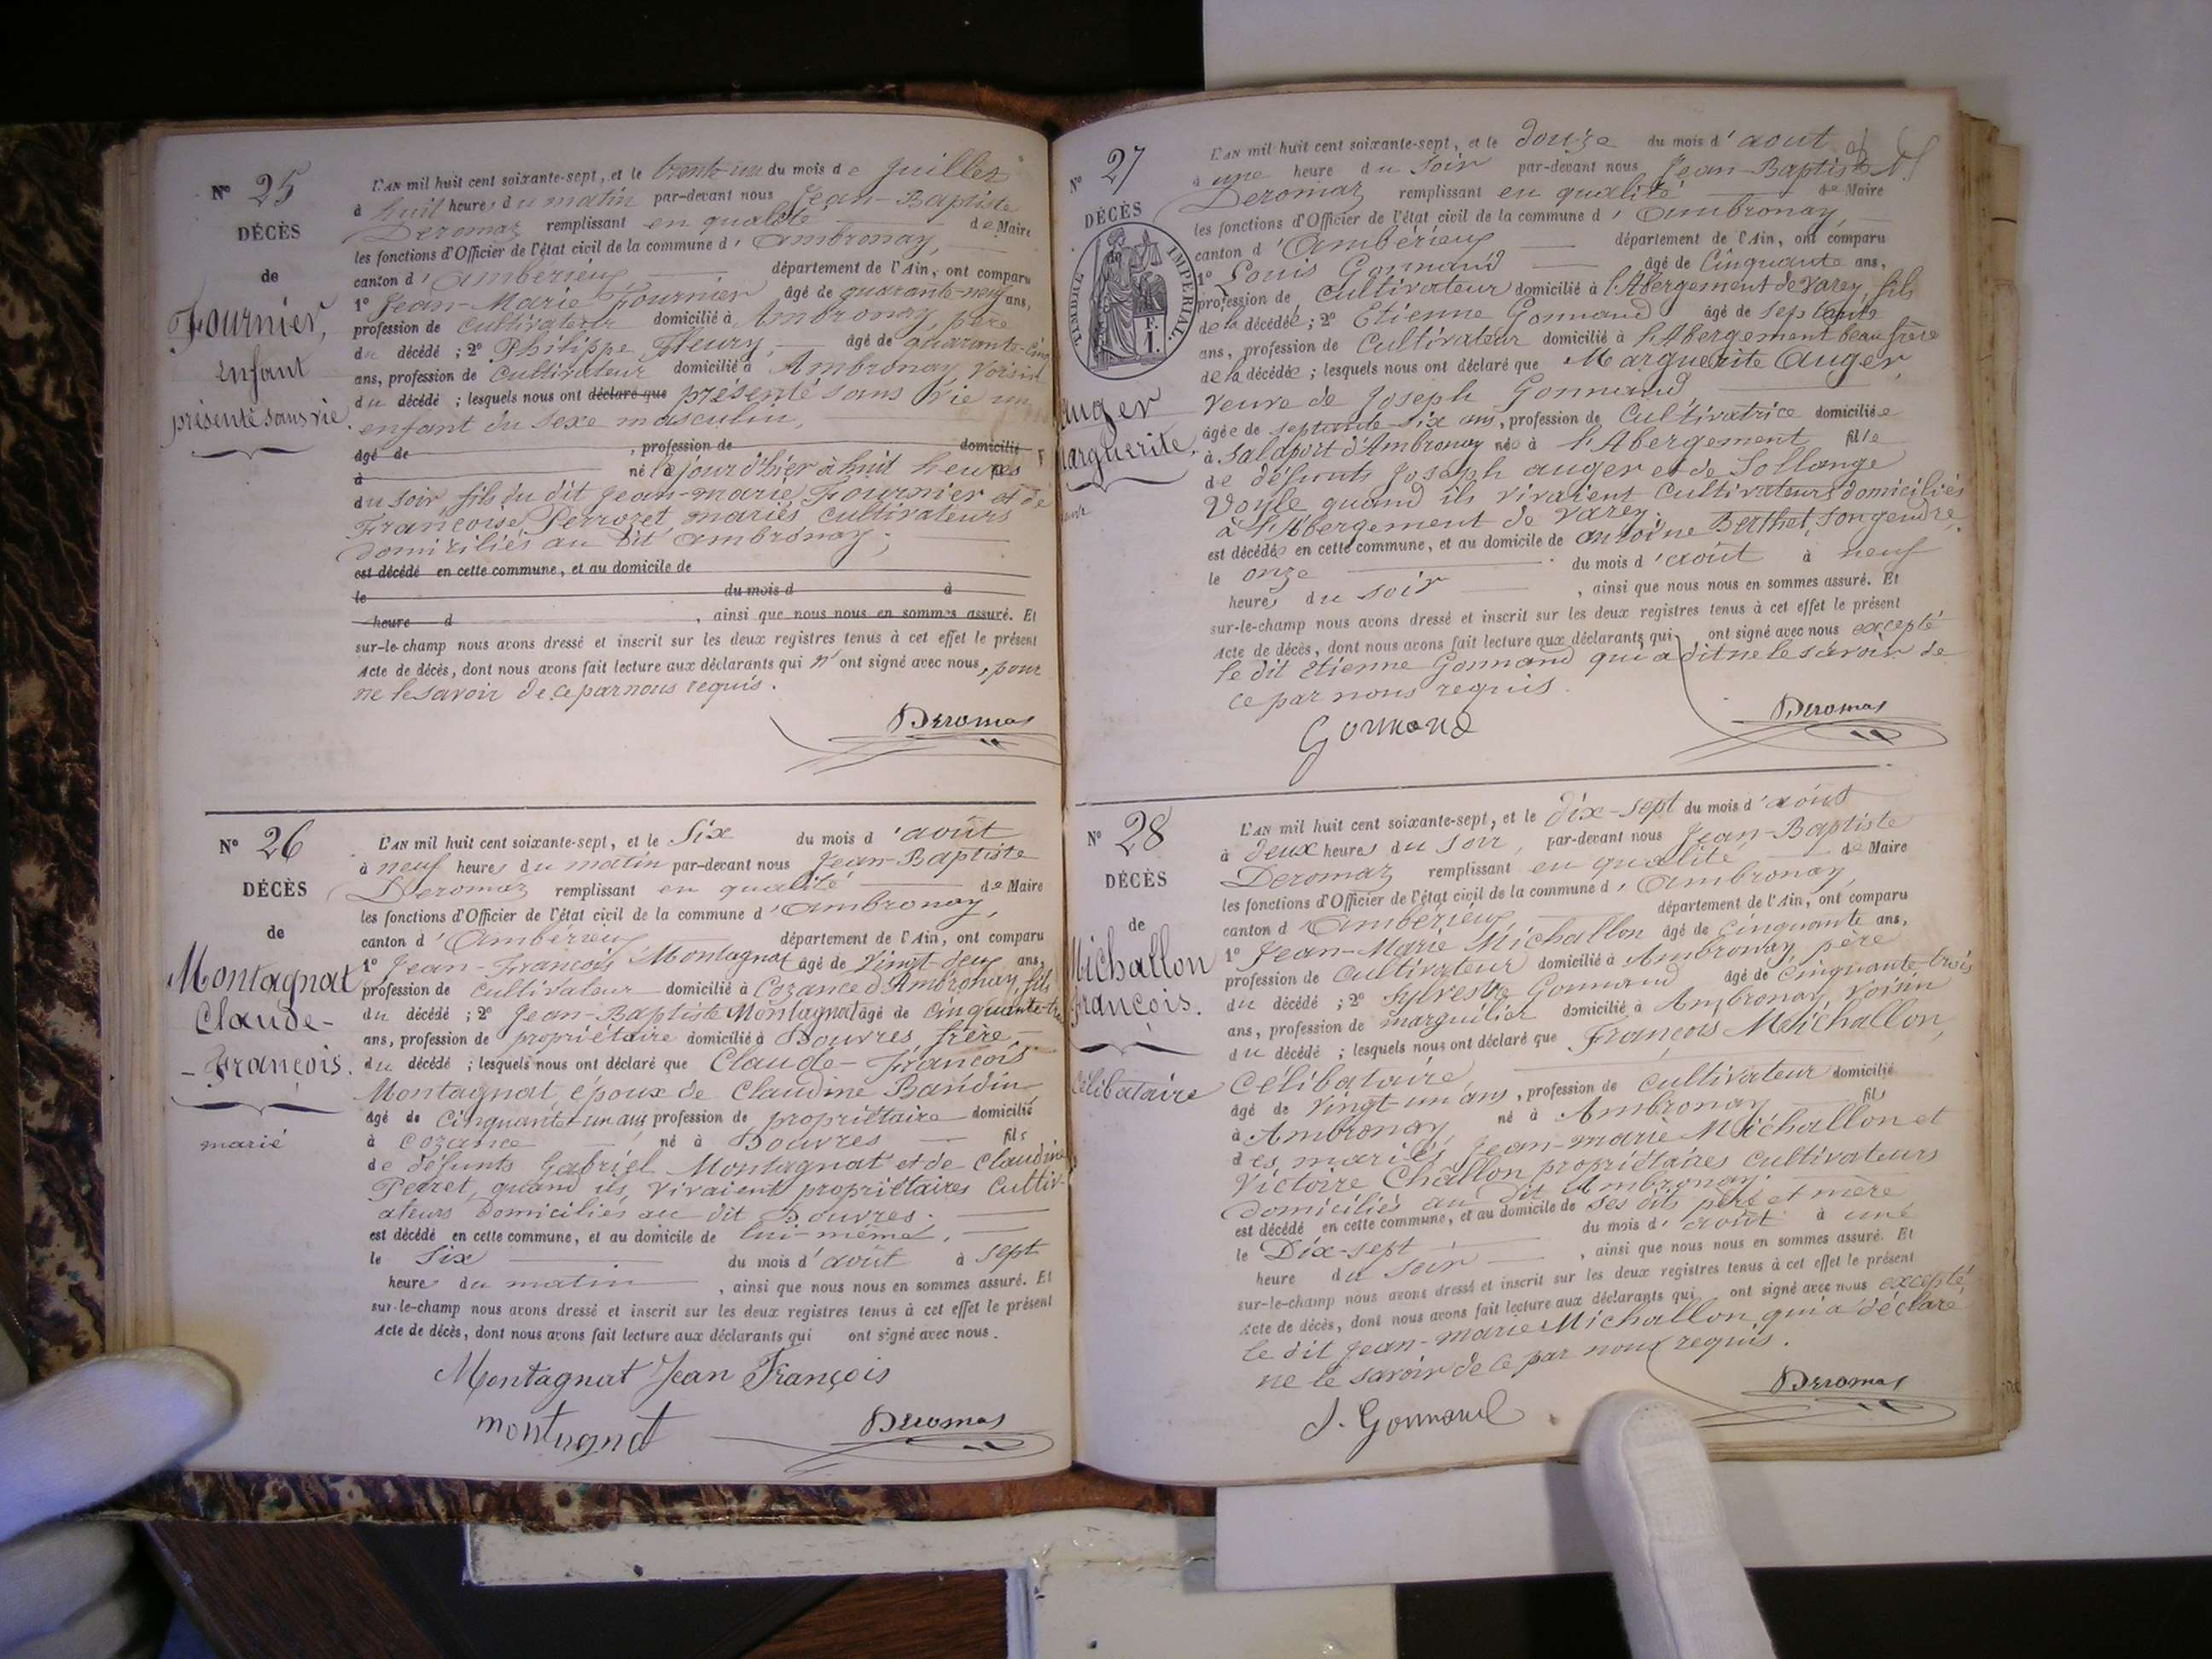 N° 25
DÉCÈS
de
Fournier,
enfant
présenté sans vie.
L'AN mil huit cent soixante-sept, et le trente-un du mois de juillet
à huit heures du matin par-devant nous Jean-Baptiste
Deromaz remplissant en qualité de Maire
les fonctions d'Officier de l'état civil de la commune d'Ambronay,
canton d'Ambérieux département de l'Ain, ont comparu
1° Jean-Marie Fournier âgé de quarante-neuf ans,
profession de cultivateur domicilié à Ambronay, père
du décédé ; 2° Philippe Fleury, âgé de quarante-cinq
ans, profession de cultivateur domicilié à Ambronay voisin
du décédé ; lesquels nous ont déclaré que présenté sans vie un
enfant du sexe masculin,
âgé de , profession de domicilié
à né le jour d'hier à huit heures
du soir, fils du dit Jean-marie Fournier et de
Françoise Perrozet, mariés, cultivateurs
domiciliés au dit Ambronay ;
est décédé en cette commune, et au domicile de
le du mois d à
heure d , ainsi que nous nous en sommes assuré. Et
sur-le-champ nous avons dressé et inscrit sur les deux registres tenus à cet effet le présent
Acte de décès, dont nous avons fait lecture aux déclarants qui n'ont signé avec nous, pour
ne le savoir de ce par nous requis.
Deromas
N° 26
DÉCÈS
de
Montagnat
Claude-
-François.
marié
L'AN mil huit cent soixante-sept, et le Six du mois d'août
à neuf heures du matin par-devant nous Jean-Baptiste
Deromaz remplissant en qualité de Maire
les fonctions d'Officier de l'état civil de la commune d'Ambronay,
canton d'Ambérieux département de l'Ain, ont comparu
1° Jean-François Montagnat âgé de vingt-deux ans,
profession de cultivateur domicilié à Cozance d'Ambronay, fils
du décédé ; 2° Jean-Baptiste Montagnat âgé de cinquante-trois
ans, profession de propriétaire domicilié à Douvres, frère
du décédé ; lesquels nous ont déclaré que Claude-François
Montagnat, époux de Claudine Baudin,
âgé de cinquante-un ans profession de propriétaire domicilié
à Cozance né à Douvres fils
de défunts Gabriel Montagnat et de Claudine
Perret, quand ils vivaient propriétaires cultiv-
ateurs domiciliés au dit Douvres ;
est décédé en cette commune, et au domicile de lui-même,
le six du mois d'août à sept
heures du matin , ainsi que nous nous en sommes assuré. Et
sur-le-champ nous avons dressé et inscrit sur les deux registres tenus à cet effet le présent
Acte de décès, dont nous avons fait lecture aux déclarants qui ont signé avec nous.
Montagnat Jean François
montagnat Deromas
N° 27
DÉCÈS
de
TIMBRE IMPÉRIAL
F.
1.
auger
Marguerite,
L'AN mil huit cent soixante-sept, et le douze du mois d'aout
à une heure du soir par-devant nous Jean-Baptiste
Deromaz remplissant en qualité de Maire
les fonctions d'Officier de l'état civil de la commune d'Ambronay,
canton d'Ambérieux département de l'Ain, ont comparu
1° Louis Gonnand âgé de Cinquante ans,
profession de cultivateur domicilié à l'Abergement de varey, fils
de la décédée ; 2° Etienne Gonnand âgé de septante
ans, profession de cultivateur domicilié à l'Abergement beau frère
de la décédée ; lesquels nous ont déclaré que Marguerite Auger,
veuve de Joseph Gonnand,
âgée de septante-six ans, profession de cultivatrice domiciliée
à Salaport d'Ambronay née à l'Abergement fille
de défunts Joseph auger et de Sollange
Voyle quand ils vivaient cultivateurs domiciliés
à l'Abergement de varey ;
est décédée en cette commune, et au domicile de antoine Berthet, son gendre,
le onze du mois d'août à neuf
heures du soir , ainsi que nous nous en sommes assuré. Et
sur-le-champ nous avons dressé et inscrit sur les deux registres tenus à cet effet le présent
Acte de décès, dont nous avons fait lecture aux déclarants qui ont signé avec nous excepté
le dit Etienne Gonnand qui a dit ne le savoir de
ce par nous requis.
Deromas
Gonnand
N° 28
DÉCÈS
de
Michallon
François.
célibataire
L'AN mil huit cent soixante-sept, et le dix-sept du mois d'août
à deux heures du soir, par-devant nous Jean-Baptiste
Deromaz remplissant en qualité de Maire
les fonctions d'Officier de l'état civil de la commune d'Ambronay,
canton d'Ambérieux, département de l'Ain, ont comparu
1° Jean-Marie Michallon âgé de cinquante ans,
profession de cultivateur domicilié à Ambronay père
du décédé ; 2° Sylvestre Gonnand âgé de cinquante-trois
ans, profession de marguillier domicilié à Ambronay, voisin
du décédé ; lesquels nous ont déclaré que François Michallon,
célibataire
âgé de vingt-un ans, profession de cultivateur domicilié
à Ambronay, né à Ambronay fils
des mariés Jean-marie Michallon et
Victoire Chállon propriétaires cultivateurs
domiciliés au dit Ambronay.
est décédé en cette commune, et au domicile de ses dits père et mère
le Dix-sept du mois d'août à une
heure du soir , ainsi que nous nous en sommes assuré. Et
sur-le-champ nous avons dressé et inscrit sur les deux registres tenus à cet effet le présent
Acte de décès, dont nous avons fait lecture aux déclarants qui ont signé avec nous excepté
le dit Jean-marie Michallon qui a déclaré
ne le savoir de ce par nous requis.
Deromas
S. Gonnand